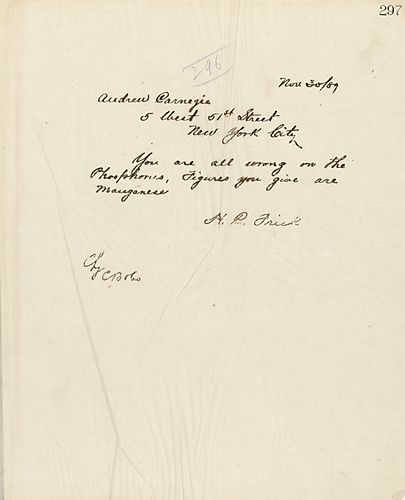 297
296
Nov 30/89
Andrew Carnegie
5 West 51st Street
New York City
You are all wrong on the
Phosphorus, Figures you give are
Manganese
H. C. Frick
Chg